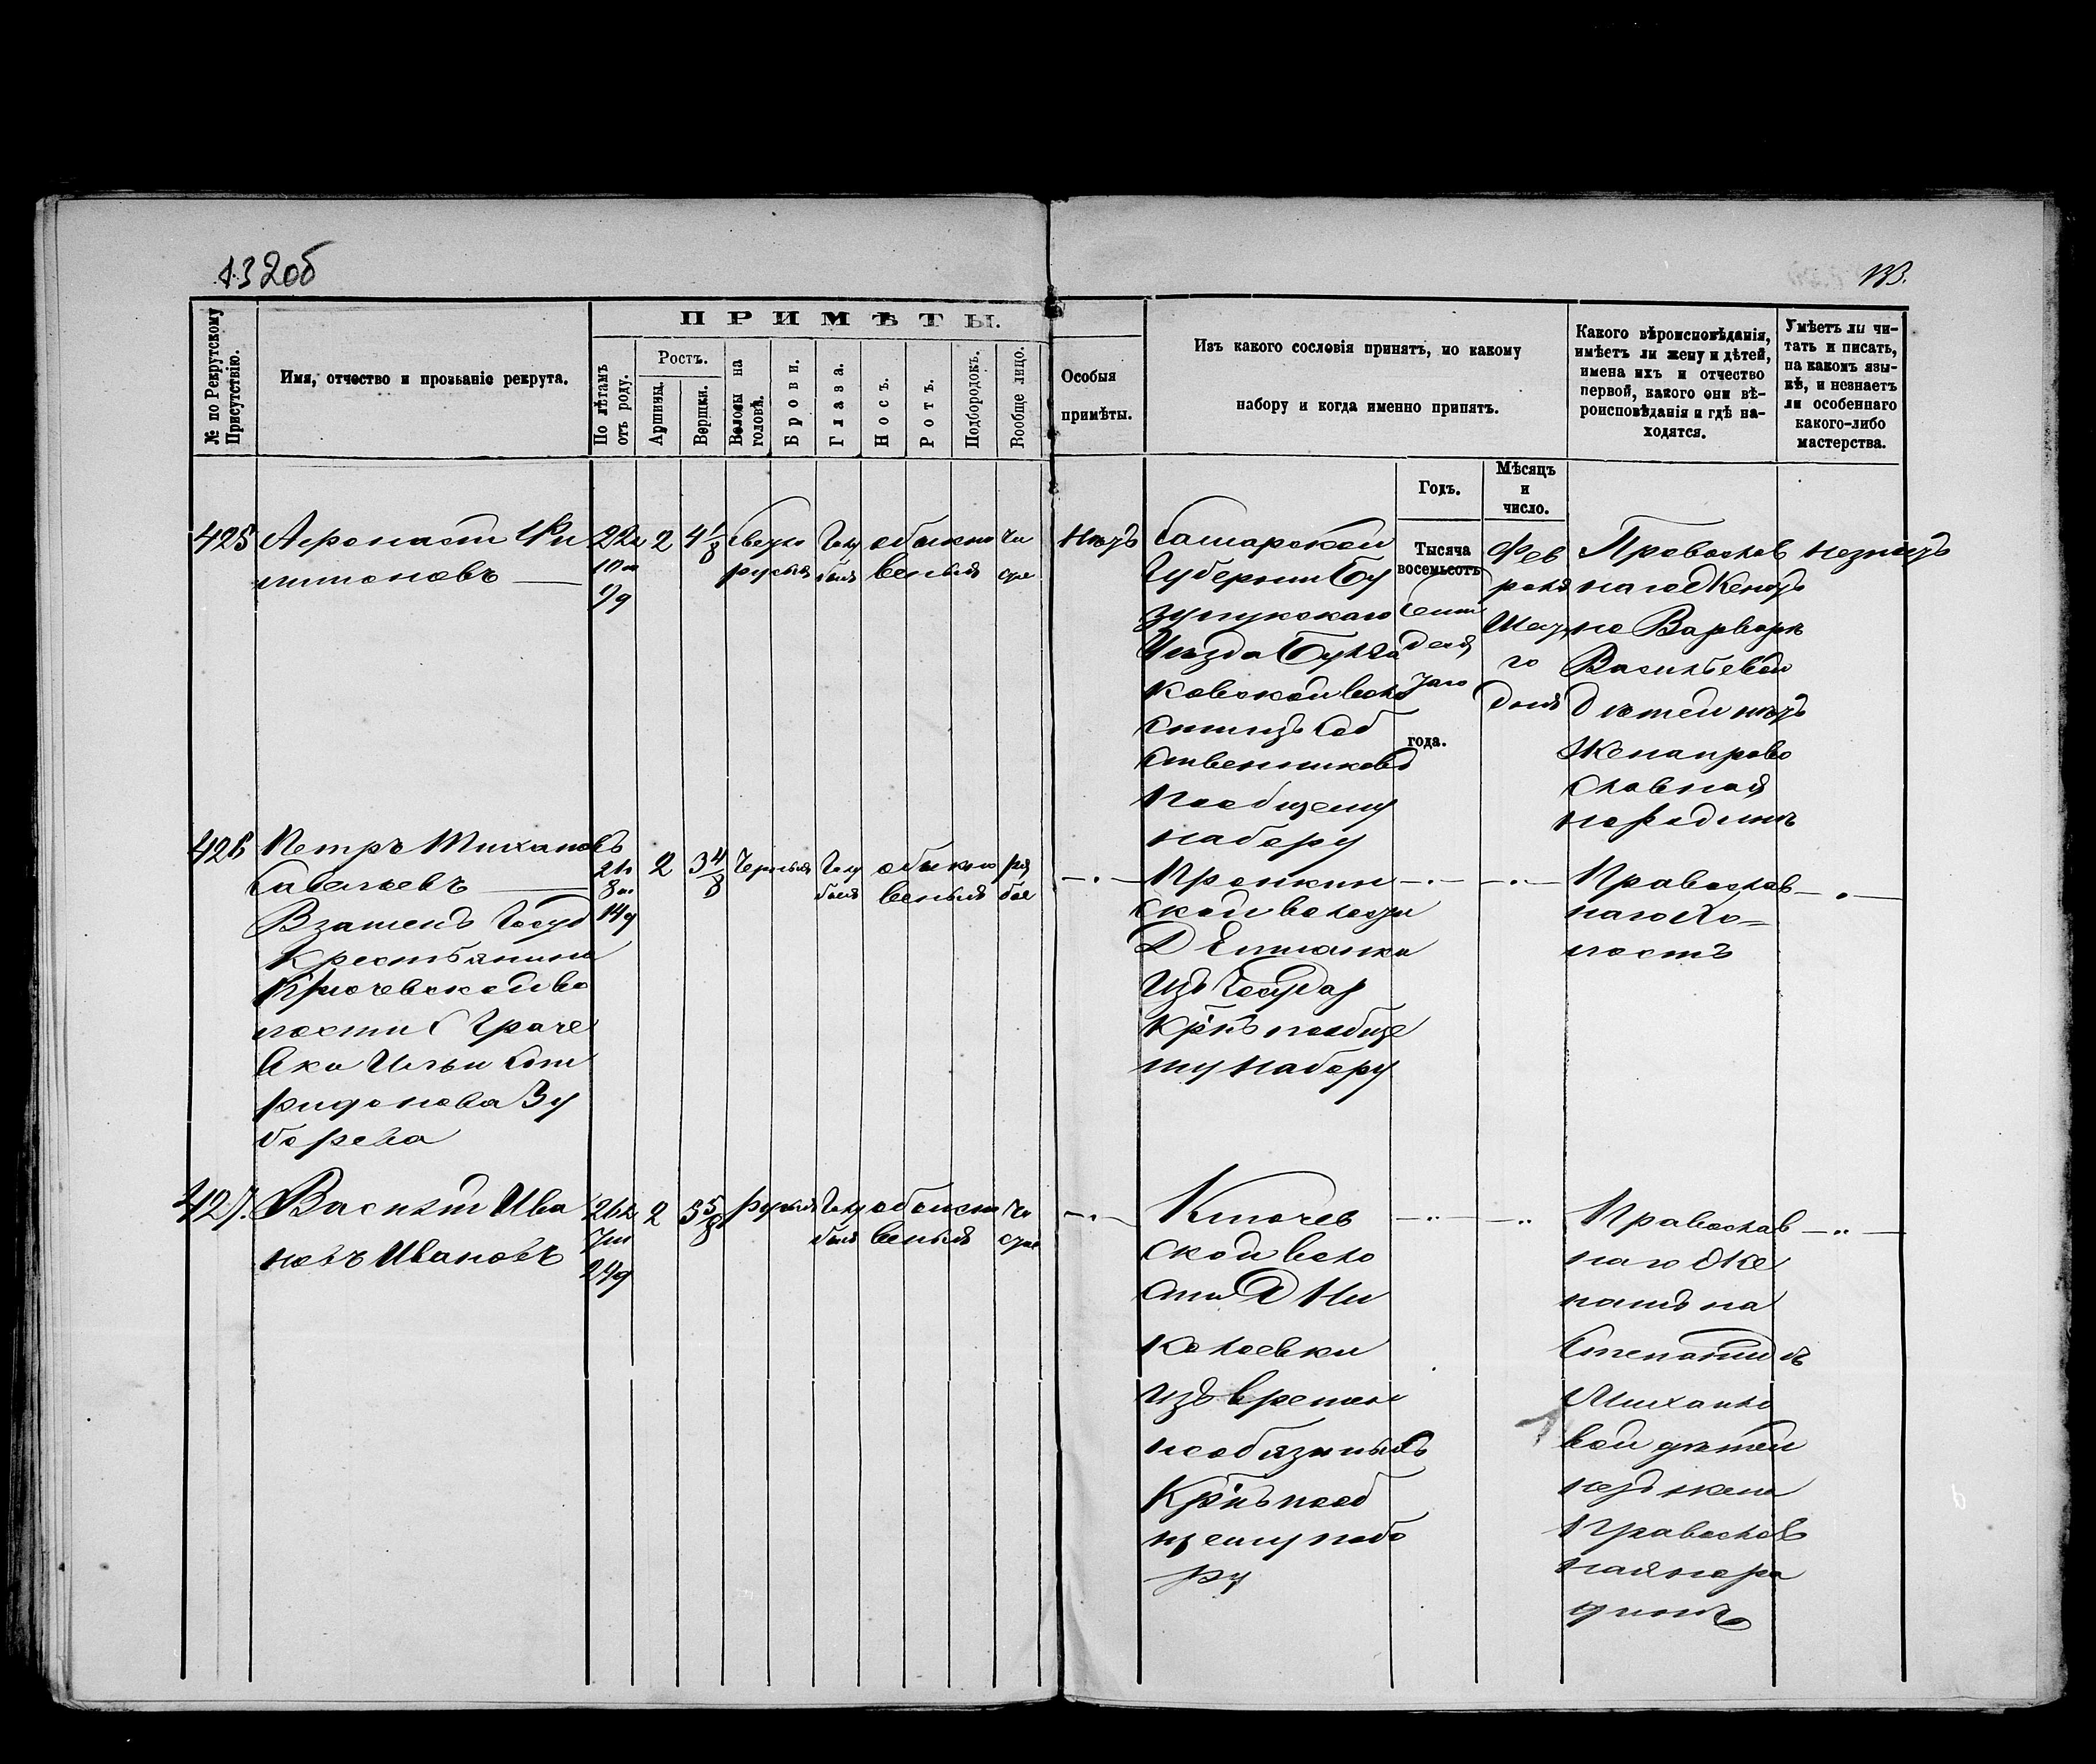 132об
133.
№ по Рекрутскому Присутствію.
Имя, отчество и прозваніе рекрута.
ПРИМѢТЫ.
По лѣтамъ отъ роду.
Ростъ.
Аршины.
Вершки.
Волосы на головѣ.
Брови.
Глаза.
Носъ.
Ротъ.
Подбородокъ.
Вообще лицо.
Особыя
примѣты.
Изъ какого сословія принятъ, по какому
набору и когда именно принятъ.
Годъ.
Мѣсяцъ
и
число.
Какого вѣроисповѣданія,
имѣетъ ли жену и дѣтей,
имена ихъ и отчество
первой, какого они вѣ-
роисповѣданія и гдѣ на-
ходятся.
Умѣетъ ли чи-
тать и писать,
на какомъ язы-
кѣ, и незнаетъ
ли особеннаго
какого-либо
мастерства.
425
22л
10м
9д
2
4 1/8
свѣтло
русыя
голу
быя
обыкно
веныя
чи
стое
Нѣтъ
Самарской
Губерніи Бу
зулукскаго
Уѣзда
ковской воло
сти изъ Соб
ственниковъ
по общему
набору
Тысяча
восемьсотъ
семи
деся
таго
года.
Фев
раля
го
дня
Православ
наго Женатъ
на Варварѣ
Васильевой
Дѣтей нѣтъ
Жена право
славная
на родинѣ
незнаетъ
426
Петръ Михаиловъ
Савельевъ
Взаменъ Госуд
Крестьянина
Ключевской во
лости С Граче
вки Ильи Спи
ридонова Зу
борева
21л
8м
14д
2
3 4/8
Черныя
голу
быя
обыкно
веныя
ря
бое
Пронкин
ской волости
Д
изъ Государ
Кр'нъ по обще
му набору
Православ
наго Хо=
лостъ
427.
Василій Ива
новъ Ивановъ
21л
7м
24д
2
3 5/8
русыя
голу
быя
обыкно
веныя
чи
стое
Ключев
ской воло
сти Д Ни
колаевки
изъ времен
нообязаныхъ
Кр'нъ по об
щему набо
ру
Православ
наго Же
натъ на
Степанидѣ
Михаило
вой дѣтей
нетъ жена
Православ
ная на ро
динѣ